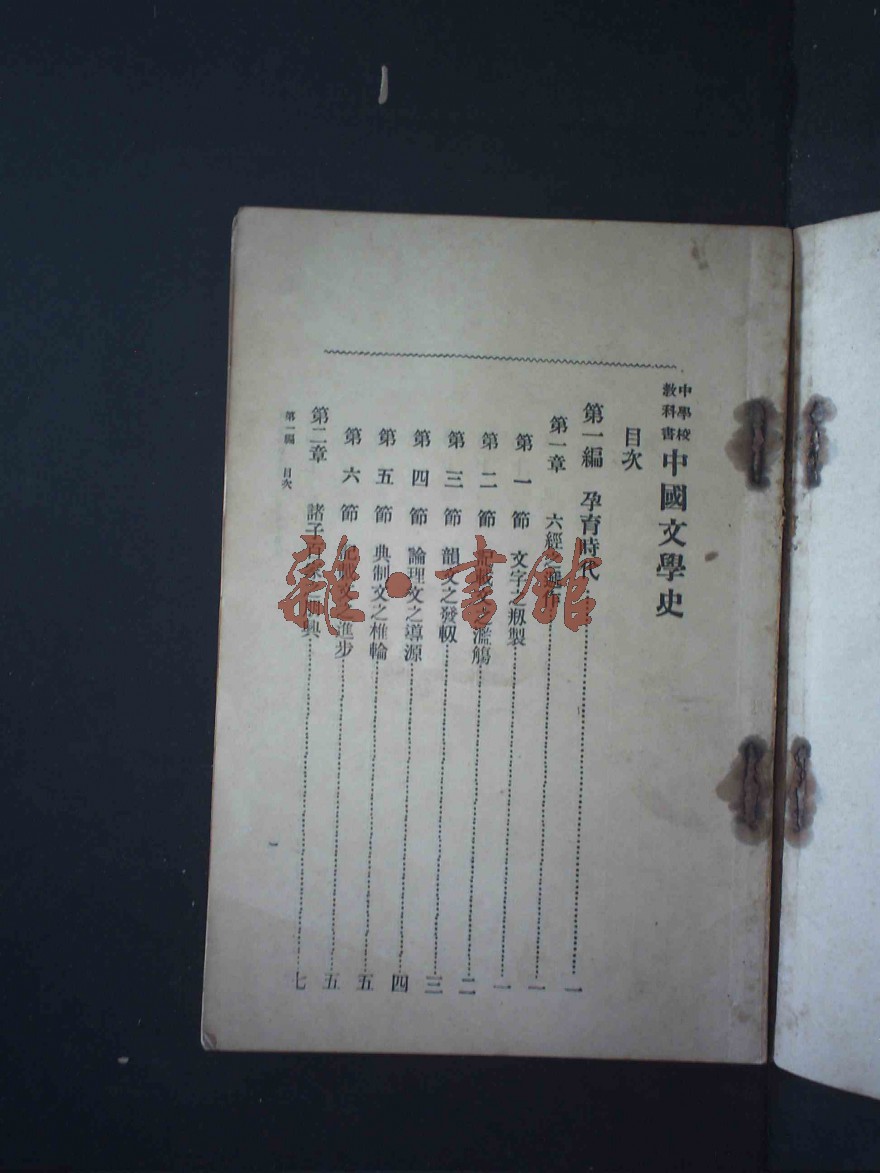 中學校教科書 中國文學史
目次
第一編 孕育時代 一
第一章 六經之 作 一
第一節 文字之剏製 一
第二節 記載文之濫觴 二
第三節 韻文之發軔 三
第四節 論理文之導源 四
第五節 典制文之椎輪 五
第六節 記載文之進步 五
第二章 諸子百家之朋興 七
第一編 目次
雜·書館